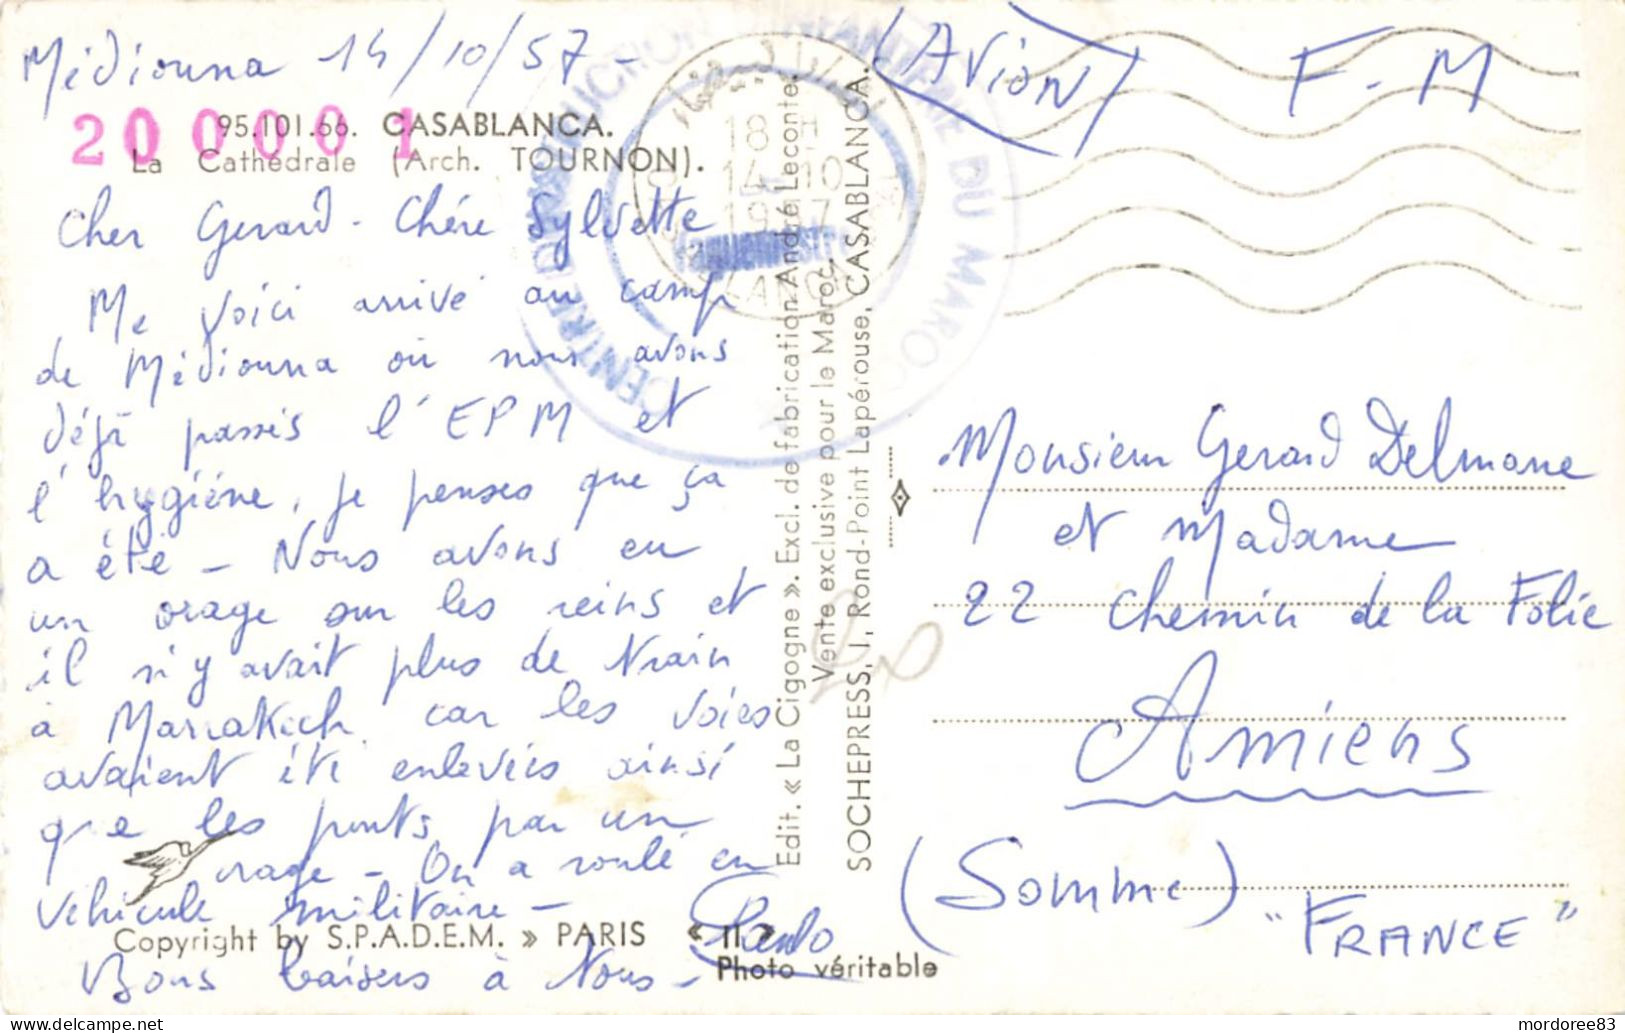 Médiouna 14/10/57 -
(Avion) F - M
200001
95.101.66. CASABLANCA.
La Cathédrale (Arch. TOURNON).
Cher Gerard - Chére Sylvette
Me voici arrivé au camp
de Médiouna où nous avons
déjà passés l'EPM et
l'hygiéne, je penses que ça
a été - Nous avons eu
un orage sur les reins et
il n'y avait plus de train
à Marrakech car les voies
avaient été enlevées ainsi
que les ponts par un
orage - On a roulé en
véhicule militaire -
Bons baisers à Vous -
Copyright by S.P.A.D.E.M. » PARIS
Photo véritable
CENTRE D'INSTRUCTION D'INFANTERIE DU MAROC
Vaguemestre
18 H
14 - 10
1957
Edit. « La Cigogne ». Excl. de fabrication André Leconte
Vente exclusive pour le Maroc
SOCHEPRESS, 1, Rond-Point Lapérouse, CASABLANCA.
Monsieur Gerard Delmane
et Madame
22 Chemin de la Folie
Amiens
(Somme)
"FRANCE"
mordoree83